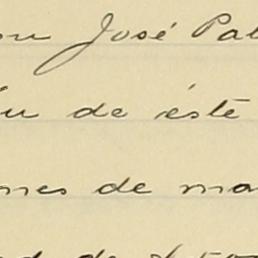 on José Pab
u de éste
mes de ma